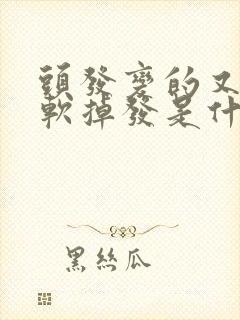 頭發變的又
軟掉發是什
黑絲瓜